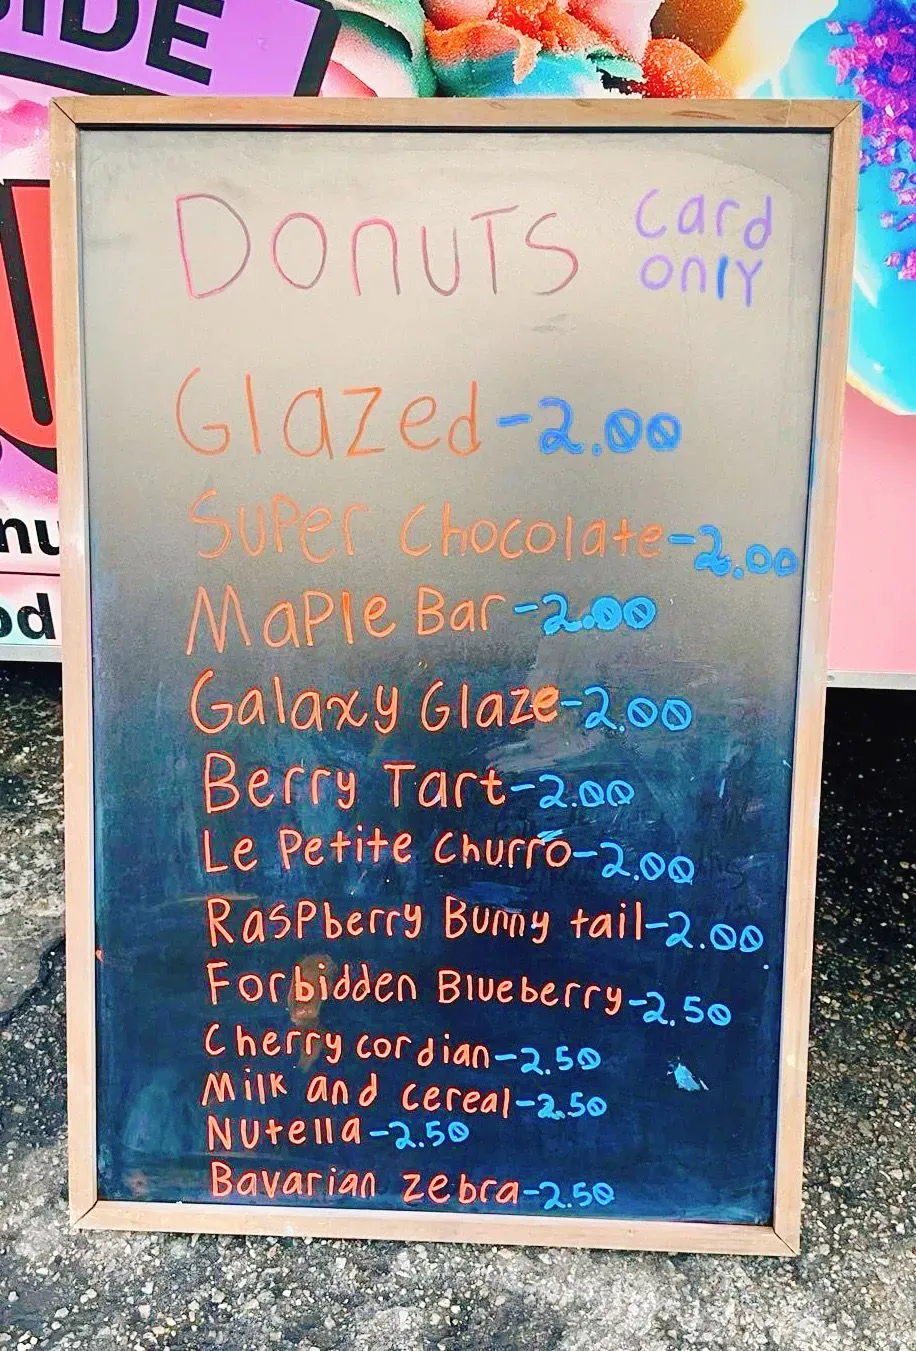 IDE
DONUTS
Card
only
Glazed-2.00
Super Chocolate-2.00
Maple Bar-2.00
Galaxy Glaze-2.00
Berry Tart-2.00
Le Petite Churro-2.00
Raspberry Bunny tail-2.00
Forbidden Blueberry-2.50
Cherry cordian-2.50
Milk and cereal-2.50
Nutella-2.50
Bavarian zebra-2.50